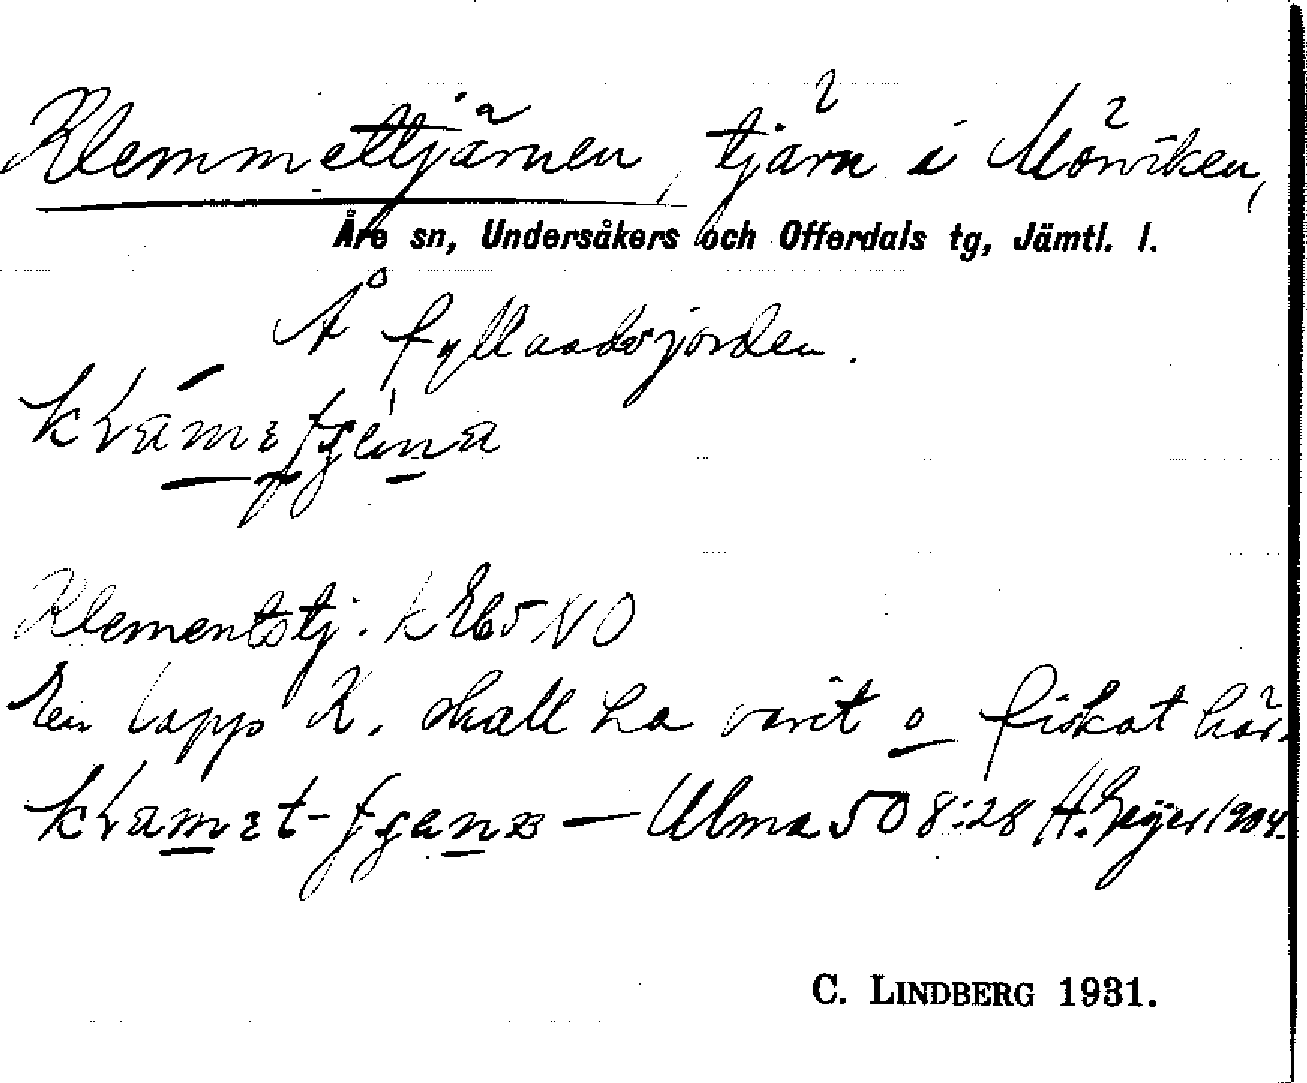 Klemmettjärnen, tjärn i Mörviken,
Åre sn, Undersåkers och Offerdals tg, Jämtl. l.
Å fyllnadsjorden.
Klementstj. k Eb5 NO
En lapp K. skall ha varit o fiskat här.
— Ulma 508:28 H. Geijer 1904.
C. LINDBERG 1931.